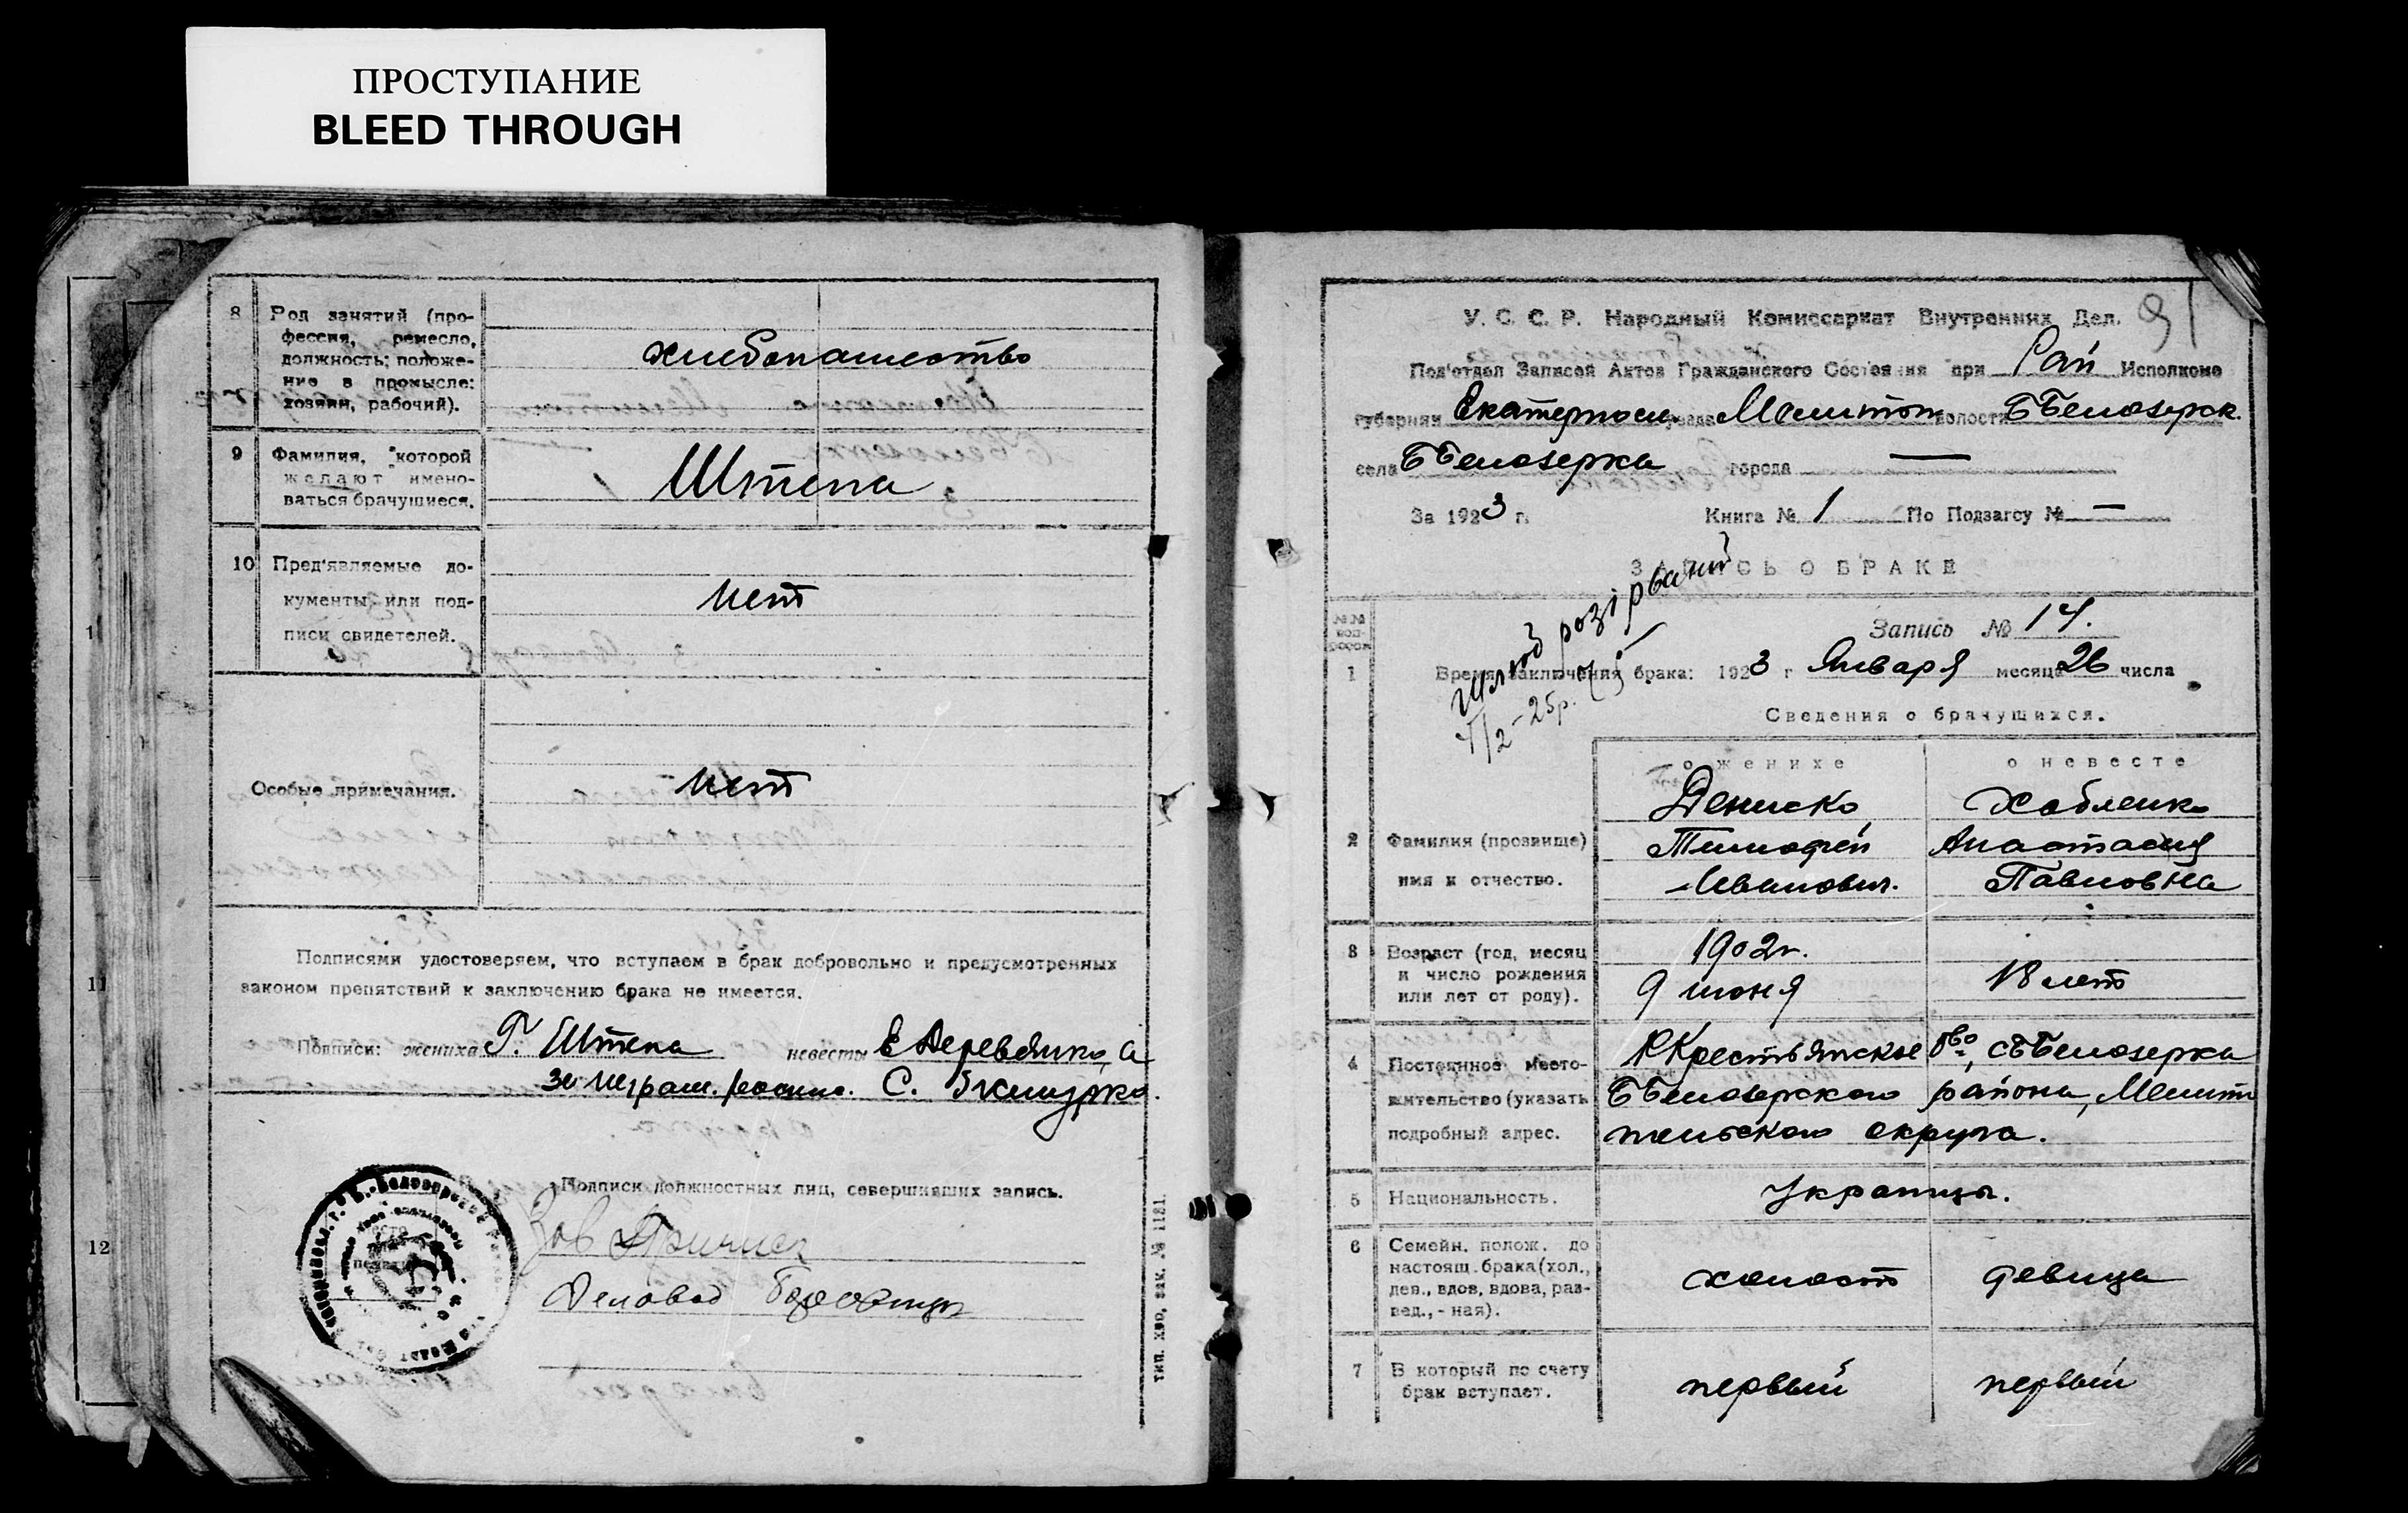 ПРОСТУПАНИЕ
BLEED THROUGH
8 Род занятий (про-
фессия, ремесло,
должность; положе-
ние в промысле:
хозяин, рабочий).
хлебопашество
9 Фамилия, которой
желают имено-
ваться брачущиеся.
Штепа
10 Пред'являемые до-
кументы или под-
писи свидетелей.
нет
Особые примечания.
нет
Подписями удостоверяем, что вступаем в брак добровольно и предусмотренных
законом препятствий к заключению брака не имеется.
11
Подписи: жениха Г. Штепа невесты Е Деревянко, а
за неграм. С.
Подписи должностных лиц, совершивших запись.
Зав
Деловод
12
тип. хво, зак. № 1121.
91
У. С. С. Р. Народный Комиссариат Внутренних Дел.
Под'отдел Записей Актов Гражданского Состояния при Рай Исполкоме
губернии Екатеринослав. уезда Мелитоп. волости Б Белозерск.
села Б Белозерка города —
За 1923 г. Книга № 1 По Подзагсу № —
ЗАПИСЬ О БРАКЕ
Шлюб розірваний
2-25р.
№№ воп-росов
Запись № 14.
1 Время заключения брака: 1923 г Января месяца 26 числа
Сведения о брачущихся.
о женихе о невесте
2 Фамилия (прозвище)
имя и отчество.
Дениско Хабленко
Тимофей Анастасия
Иванович. Павловна
3 Возраст (год, месяц
и число рождения
или лет от роду).
1902 г.
9 июня 18 лет
4 Постоянное место-
жительство (указать
подробный адрес.
Крестьянское о-во, с Б Белозерка
Б Белозерского района, Мелито
польского округа.
5 Национальность.
Украинцы.
6 Семейн. полож. до
настоящ. брака (хол.,
дев., вдов, вдова, раз-
вед., - ная).
холост девица
7 В который по счету
брак вступает.
первый первый